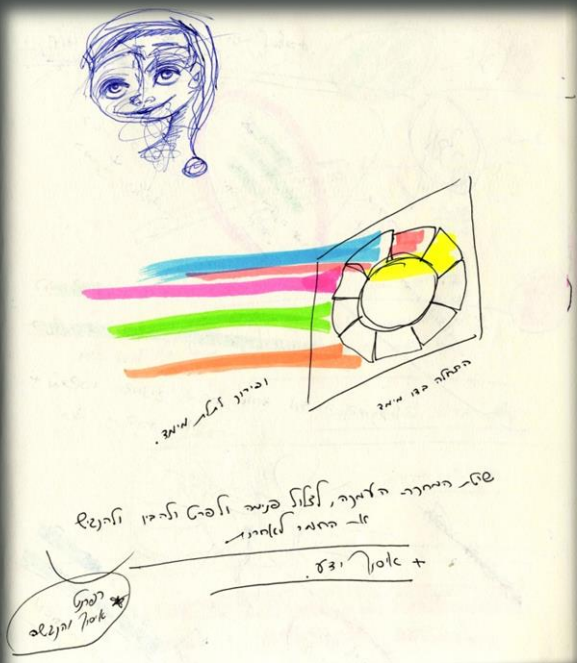 התחלה בדו מימד
ופירוק לתלת מימד.
שיטת המחקר: העמקה, לצלול פנימה ולפרט ולהבין ולהנגיש
את החומר לאחרות.
+ איסוף ידע.
איסוף והנגשה